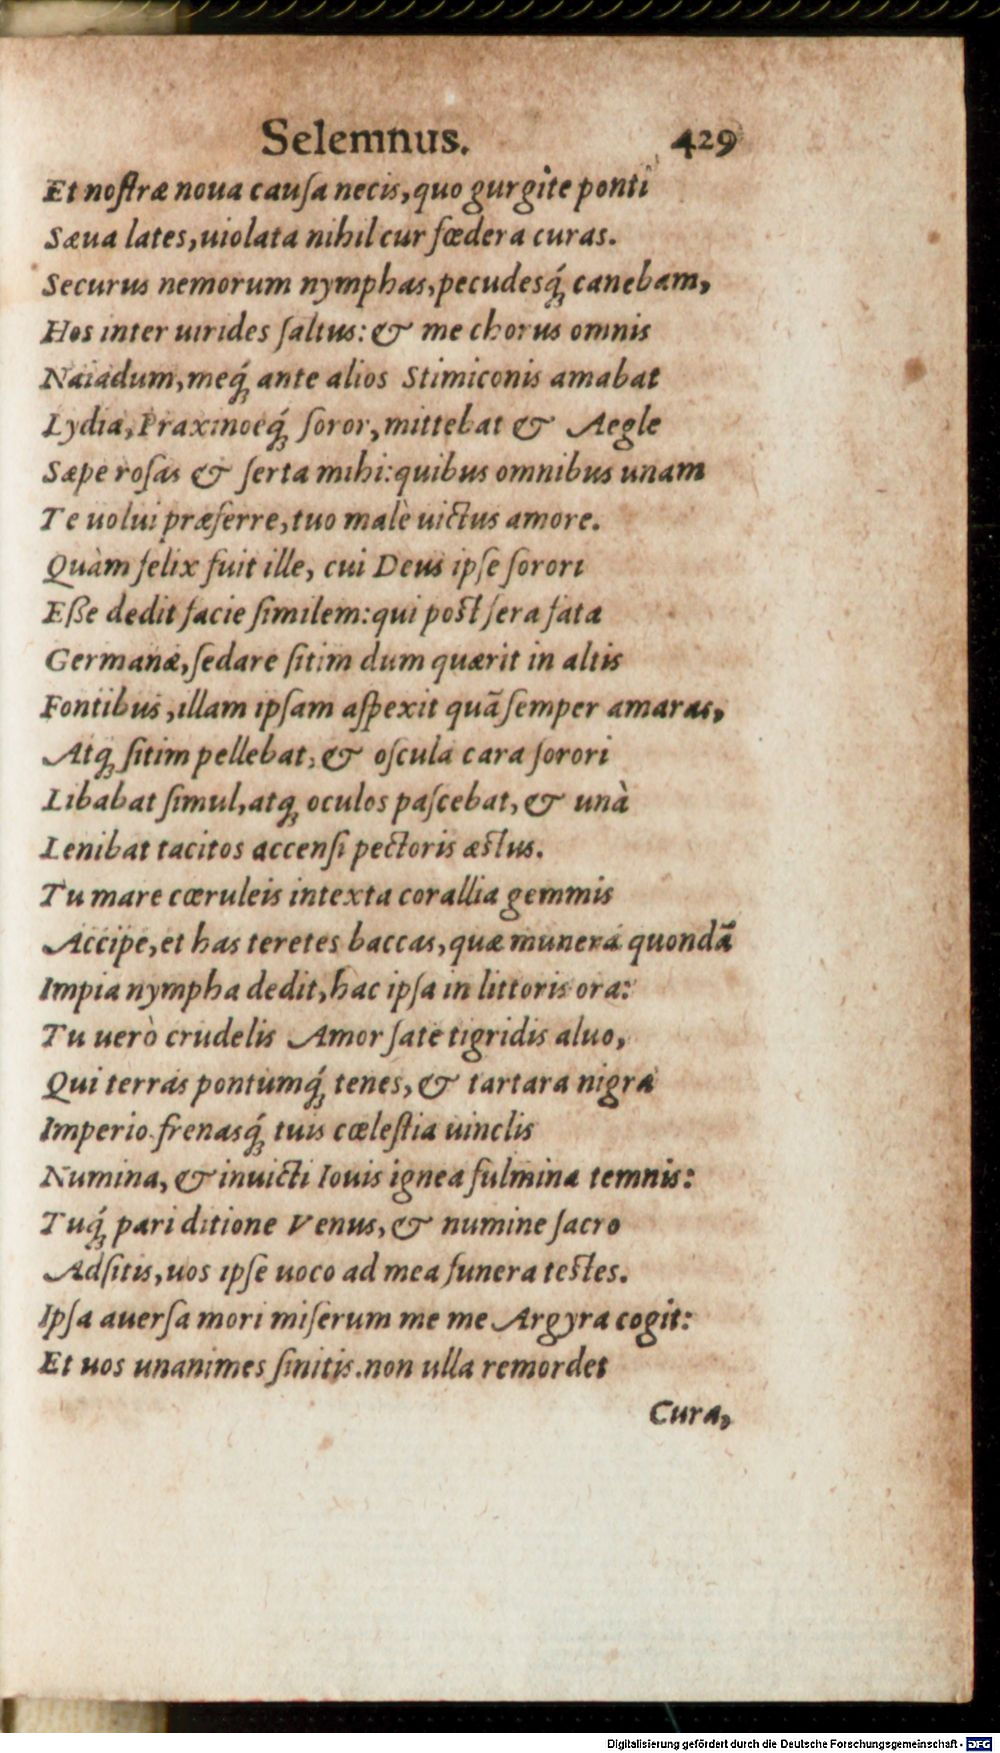 Selemnus. 429
Et nostræ noua causa necis, quo gurgite ponti
Sæua lates, uiolata nihil cur fœdera curas.
Securus nemorum nymphas, pecudesq́; canebam,
Hos inter uirides saltus: & me chorus omnis
Naiadum, meq́; ante alios Stimiconis amabat
Lydia, Praxinoeq́; soror, mittebat & Aegle
Sæpe rosas & serta mihi: quibus omnibus unam
Te uolui præferre, tuo malè uictus amore.
Quàm felix fuit ille, cui Deus ipse sorori
Eße dedit facie similem: qui post fera fata
Germanæ, sedare sitim dum quærit in altis
Fontibus, illam ipsam aspexit quā semper amaras,
Atq; sitim pellebat, & oscula cara sorori
Libabat simul, atq; oculos pascebat, & unà
Lenibat tacitos accensi pectoris æstus.
Tu mare cœruleis intexta corallia gemmis
Accipe, et has teretes baccas, quæ munera quondā
Impia nympha dedit, hac ipsa in littoris ora:
Tu uerò crudelis Amor sate tigridis aluo,
Qui terras pontumq́; tenes, & tartara nigra
Imperio frenasq́; tuis cœlestia uinclis
Numina, & inuicti Iouis ignea fulmina temnis:
Tuq́; pari ditione Venus, & numine sacro
Adsitis, uos ipse uoco ad mea funera testes.
Ipsa auersa mori miserum me me Argyra cogit:
Et uos unanimes sinitis. non ulla remordet
Cura,
Digitalisierung gefördert durch die Deutsche Forschungsgemeinschaft - DFG